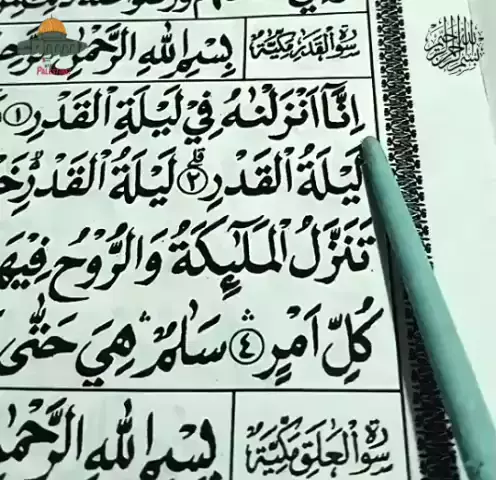 سورة القدر مكية
بِسْمِ اللهِ الرَّحْمٰنِ
اِنَّآ اَنْزَلْنٰهُ فِيْ لَيْلَةِ الْقَدْرِ ۝١
لَيْلَةُ الْقَدْرِ ۝٢ لَيْلَةُ الْقَدْرِ
تَنَزَّلُ الْمَلٰٓئِكَةُ وَالرُّوْحُ فِيْهَا
كُلِّ اَمْرٍ ۝٤ سَلٰمٌ هِيَ حَتّٰى
سورة العلق مكية
بِسْمِ اللهِ الرَّحْمٰنِ